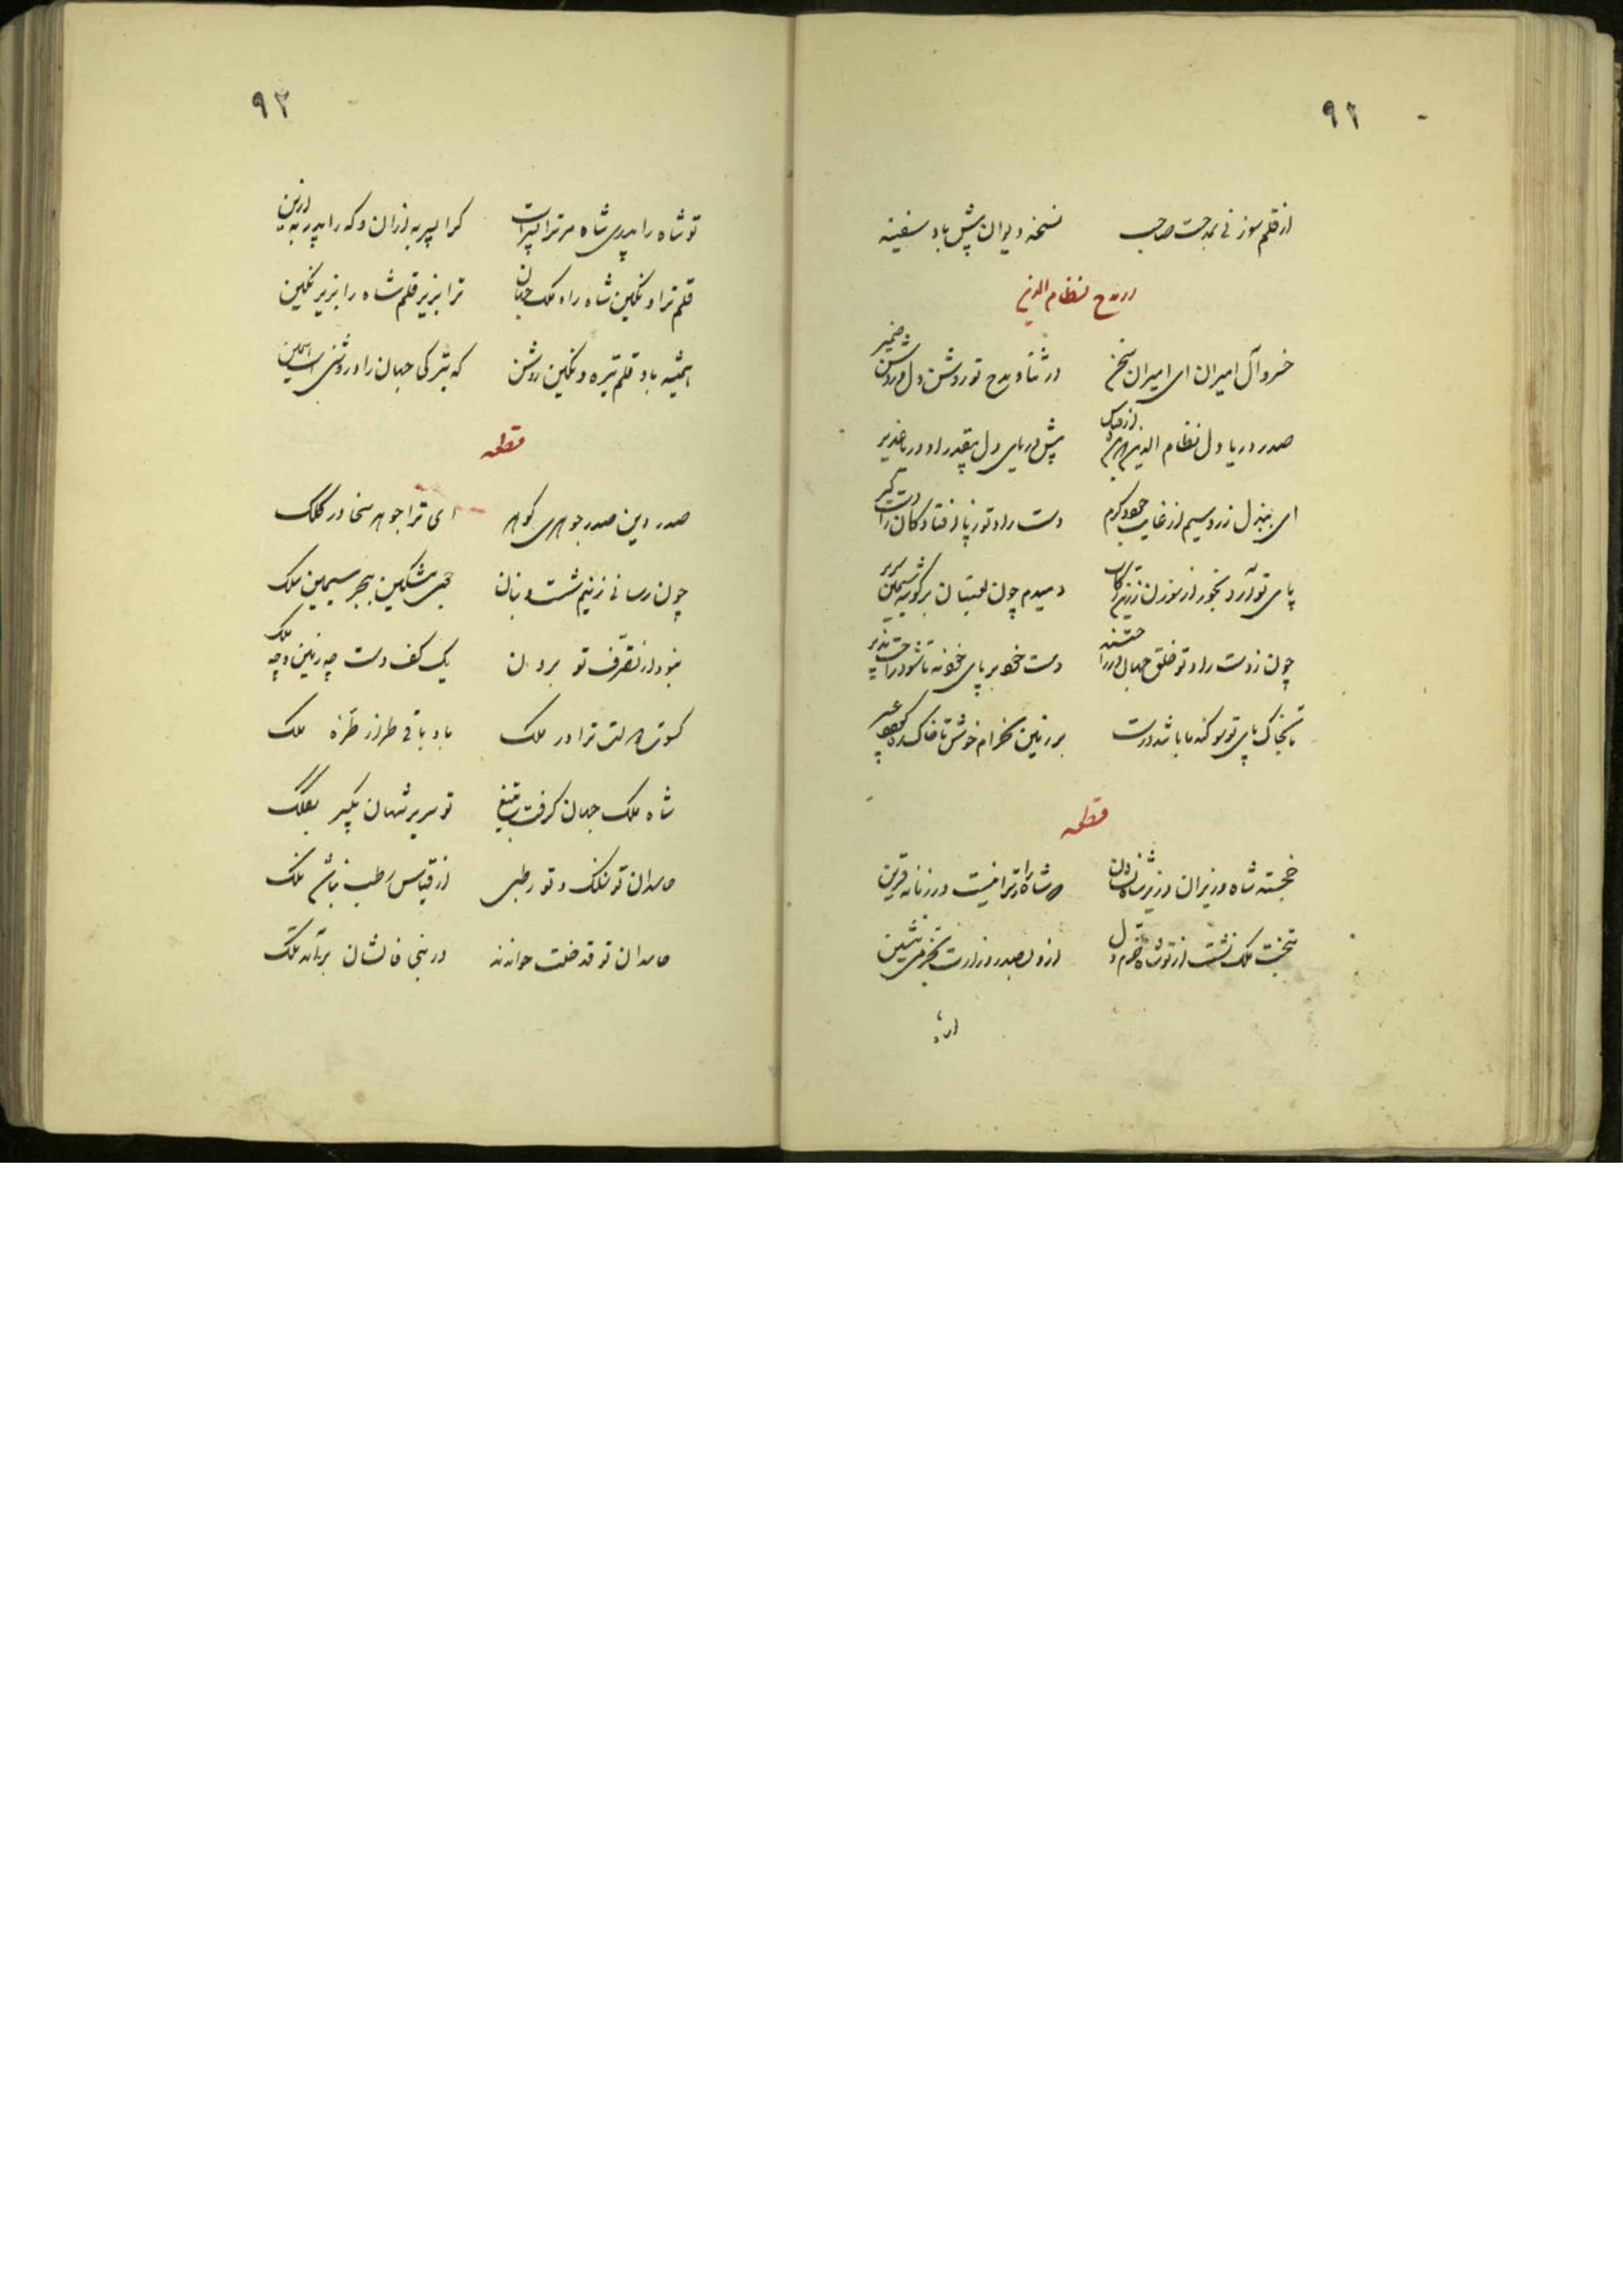 ۹۲
از قلم سوزنی بمدحت صاحب نسخه دیوان پیش باد سفینه
در مدح نظام الدین
خسرو آل امیران ای امیران سخن در ثنا و مدح تو روشن دل و روشن ضمیر
صدر دریا دل نظام الدین پیش دریای دل بیقدر او دریا غدیر
ای ببذل زر و سیم از غایت جود و کرم دست راد تو ز پا افتادگان را دست گیر
پای تو آزرد بخور از سوزن زرین رکاب دمیدم چون لعبتان بر گوشه سیمین سریر
چون ز دست راد تو خلق جهان در راحتند دست خود بر پای خود نه تا شود راحت پذیر
تا بخاک پای تو سوگند ما باشد درست بر زمین بخرام خوش تا خاک ره گردد عبیر
قطعه
خجسته شاه وزیران وزیر شاه نشان دو شاه را و ترا نیست در زمانه قرین
بتخت ملک نشست از تو شاه خرم دل ازو بصدر وزارت بخرمی بنشین
۹۳
تو شاه را پدری شاه مر ترا پسر است کرا پسر به ازان و که را پدر به ازین
قلم ترا و نگین شاه راه ملک جهان ترا بزیر قلم شاه را بزیر نگین
همیشه باد قلم تیره و نگین روشن که تیرگی جهان را و روشنی است
قطعه
صدر دین صدر جوهری گوهر ای ترا جوهر سخا در کلک
چون رسانی ز نیم شست و بنان جیش مشکین ببحر سیمین ملک
نبود از تصرف تو برون یک کف دست چه زمین و چه ملک
کسوت دولت ترا در ملک باد باقی طراز طره ملک
شاه ملک جهان گرفت بتیغ تو سریر شهان بگیر بکلک
حاسدان تو تلنگ و تو رطبی از قیاس رطب نباشد تلنگ
حاسدان تو قد خلت خوانند در بنی